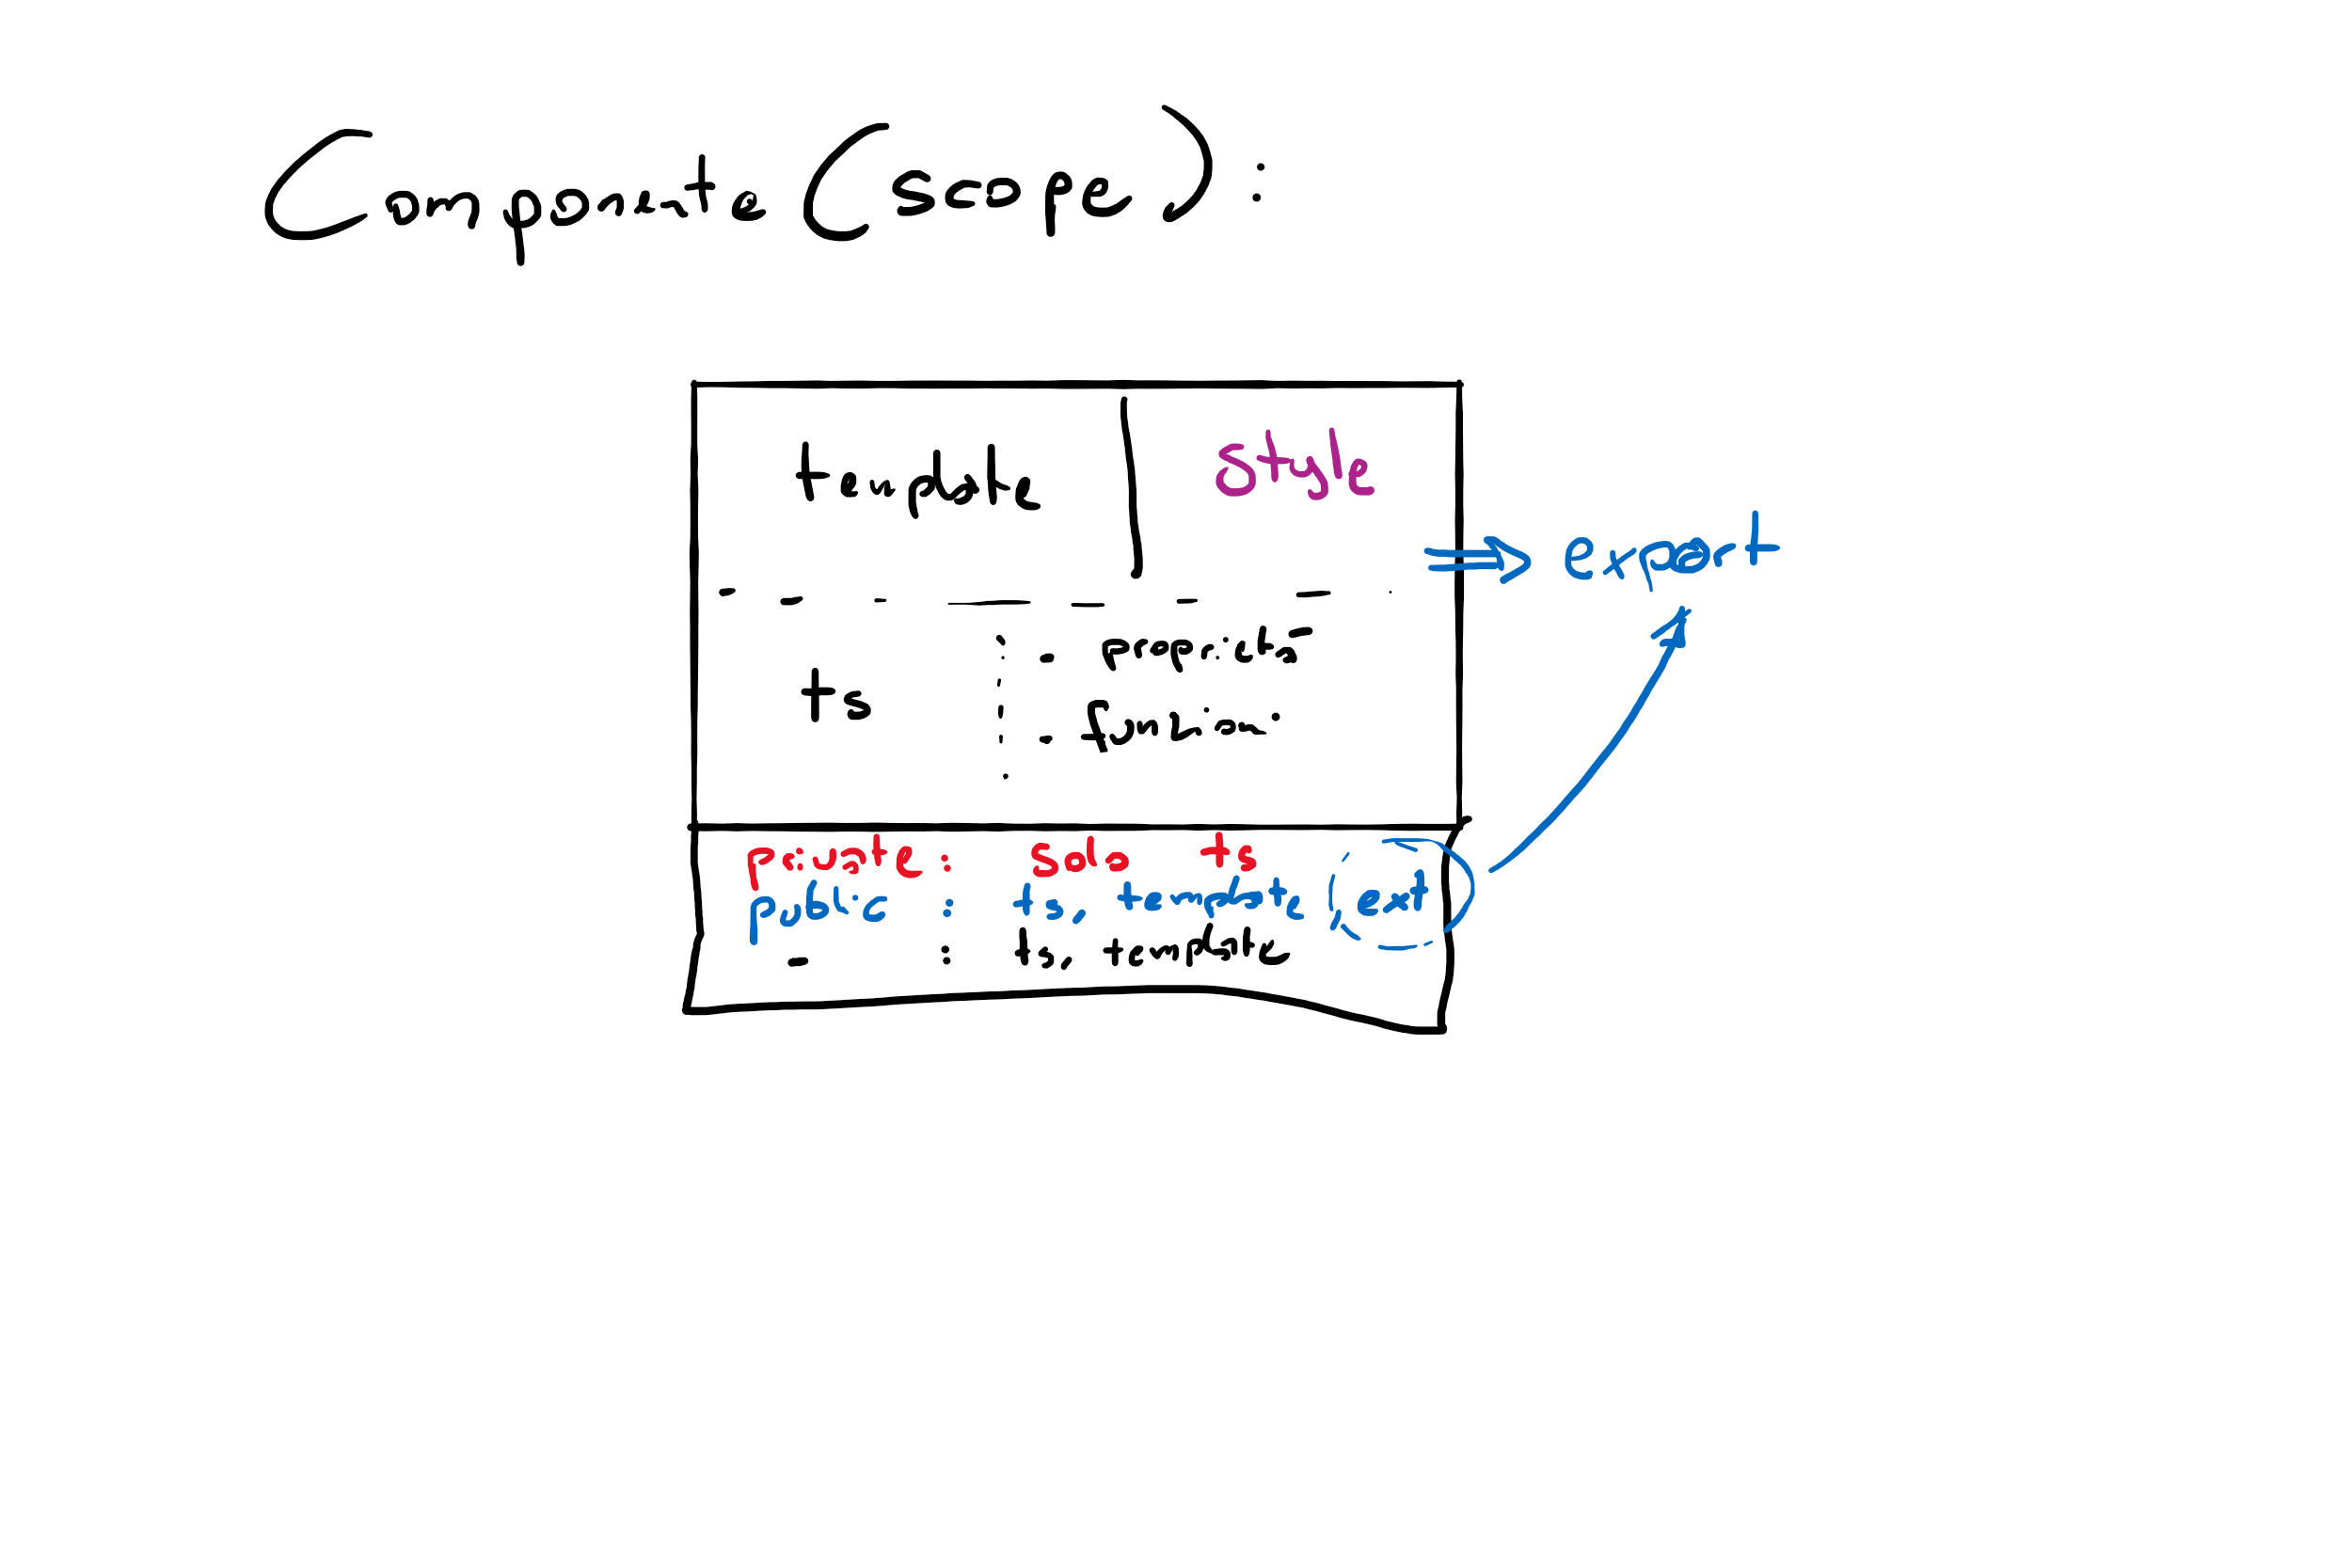 Componente (scope):
template style
export
ts - proprietà
- funzioni
private : solo ts
public : ts, template, ext
- : ts, template